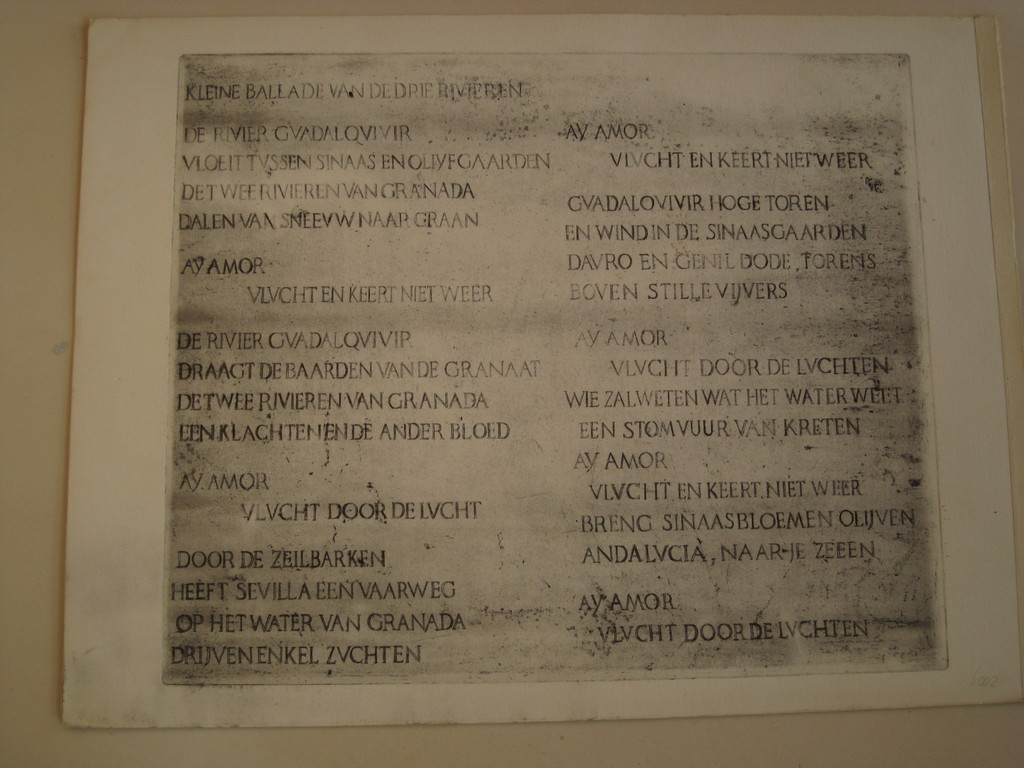 KLEINE BALLADE VAN DE DRIE RIVIEREN
DE RIVIER GVADALQVIVIR
VLOEIT TVSSEN SINAAS EN OLIJFGAARDEN
DE TWEE RIVIEREN VAN GRANADA
DALEN VAN SNEEVW NAAR GRAAN
AY AMOR
VLVCHT EN KEERT NIET WEER
DE RIVIER GVADALQVIVIR
DRAAGT DE BAARDEN VAN DE GRANAAT
DE TWEE RIVIEREN VAN GRANADA
EEN KLACHT EN EN DE ANDER BLOED
AY AMOR
VLVCHT DOOR DE LVCHT
DOOR DE ZEILBARKEN
HEEFT SEVILLA EEN VAARWEG
OP HET WATER VAN GRANADA
DRIJVEN ENKEL ZVCHTEN
AY AMOR
VLVCHT EN KEERT NIET WEER
GVADALQVIVIR HOGE TOREN
EN WIND IN DE SINAASGAARDEN
DAVRO EN GENIL DODE TORENS
BOVEN STILLE VIJVERS
AY AMOR
VLVCHT DOOR DE LVCHTEN
WIE ZAL WETEN WAT HET WATER WEET
EEN STOM VUUR VAN KRETEN
AY AMOR
VLVCHT EN KEERT NIET WEER
BRENG SINAASBLOEMEN OLIJVEN
ANDALVCIA, NAAR JE ZEEEN
AY AMOR
VLVCHT DOOR DE LVCHTEN